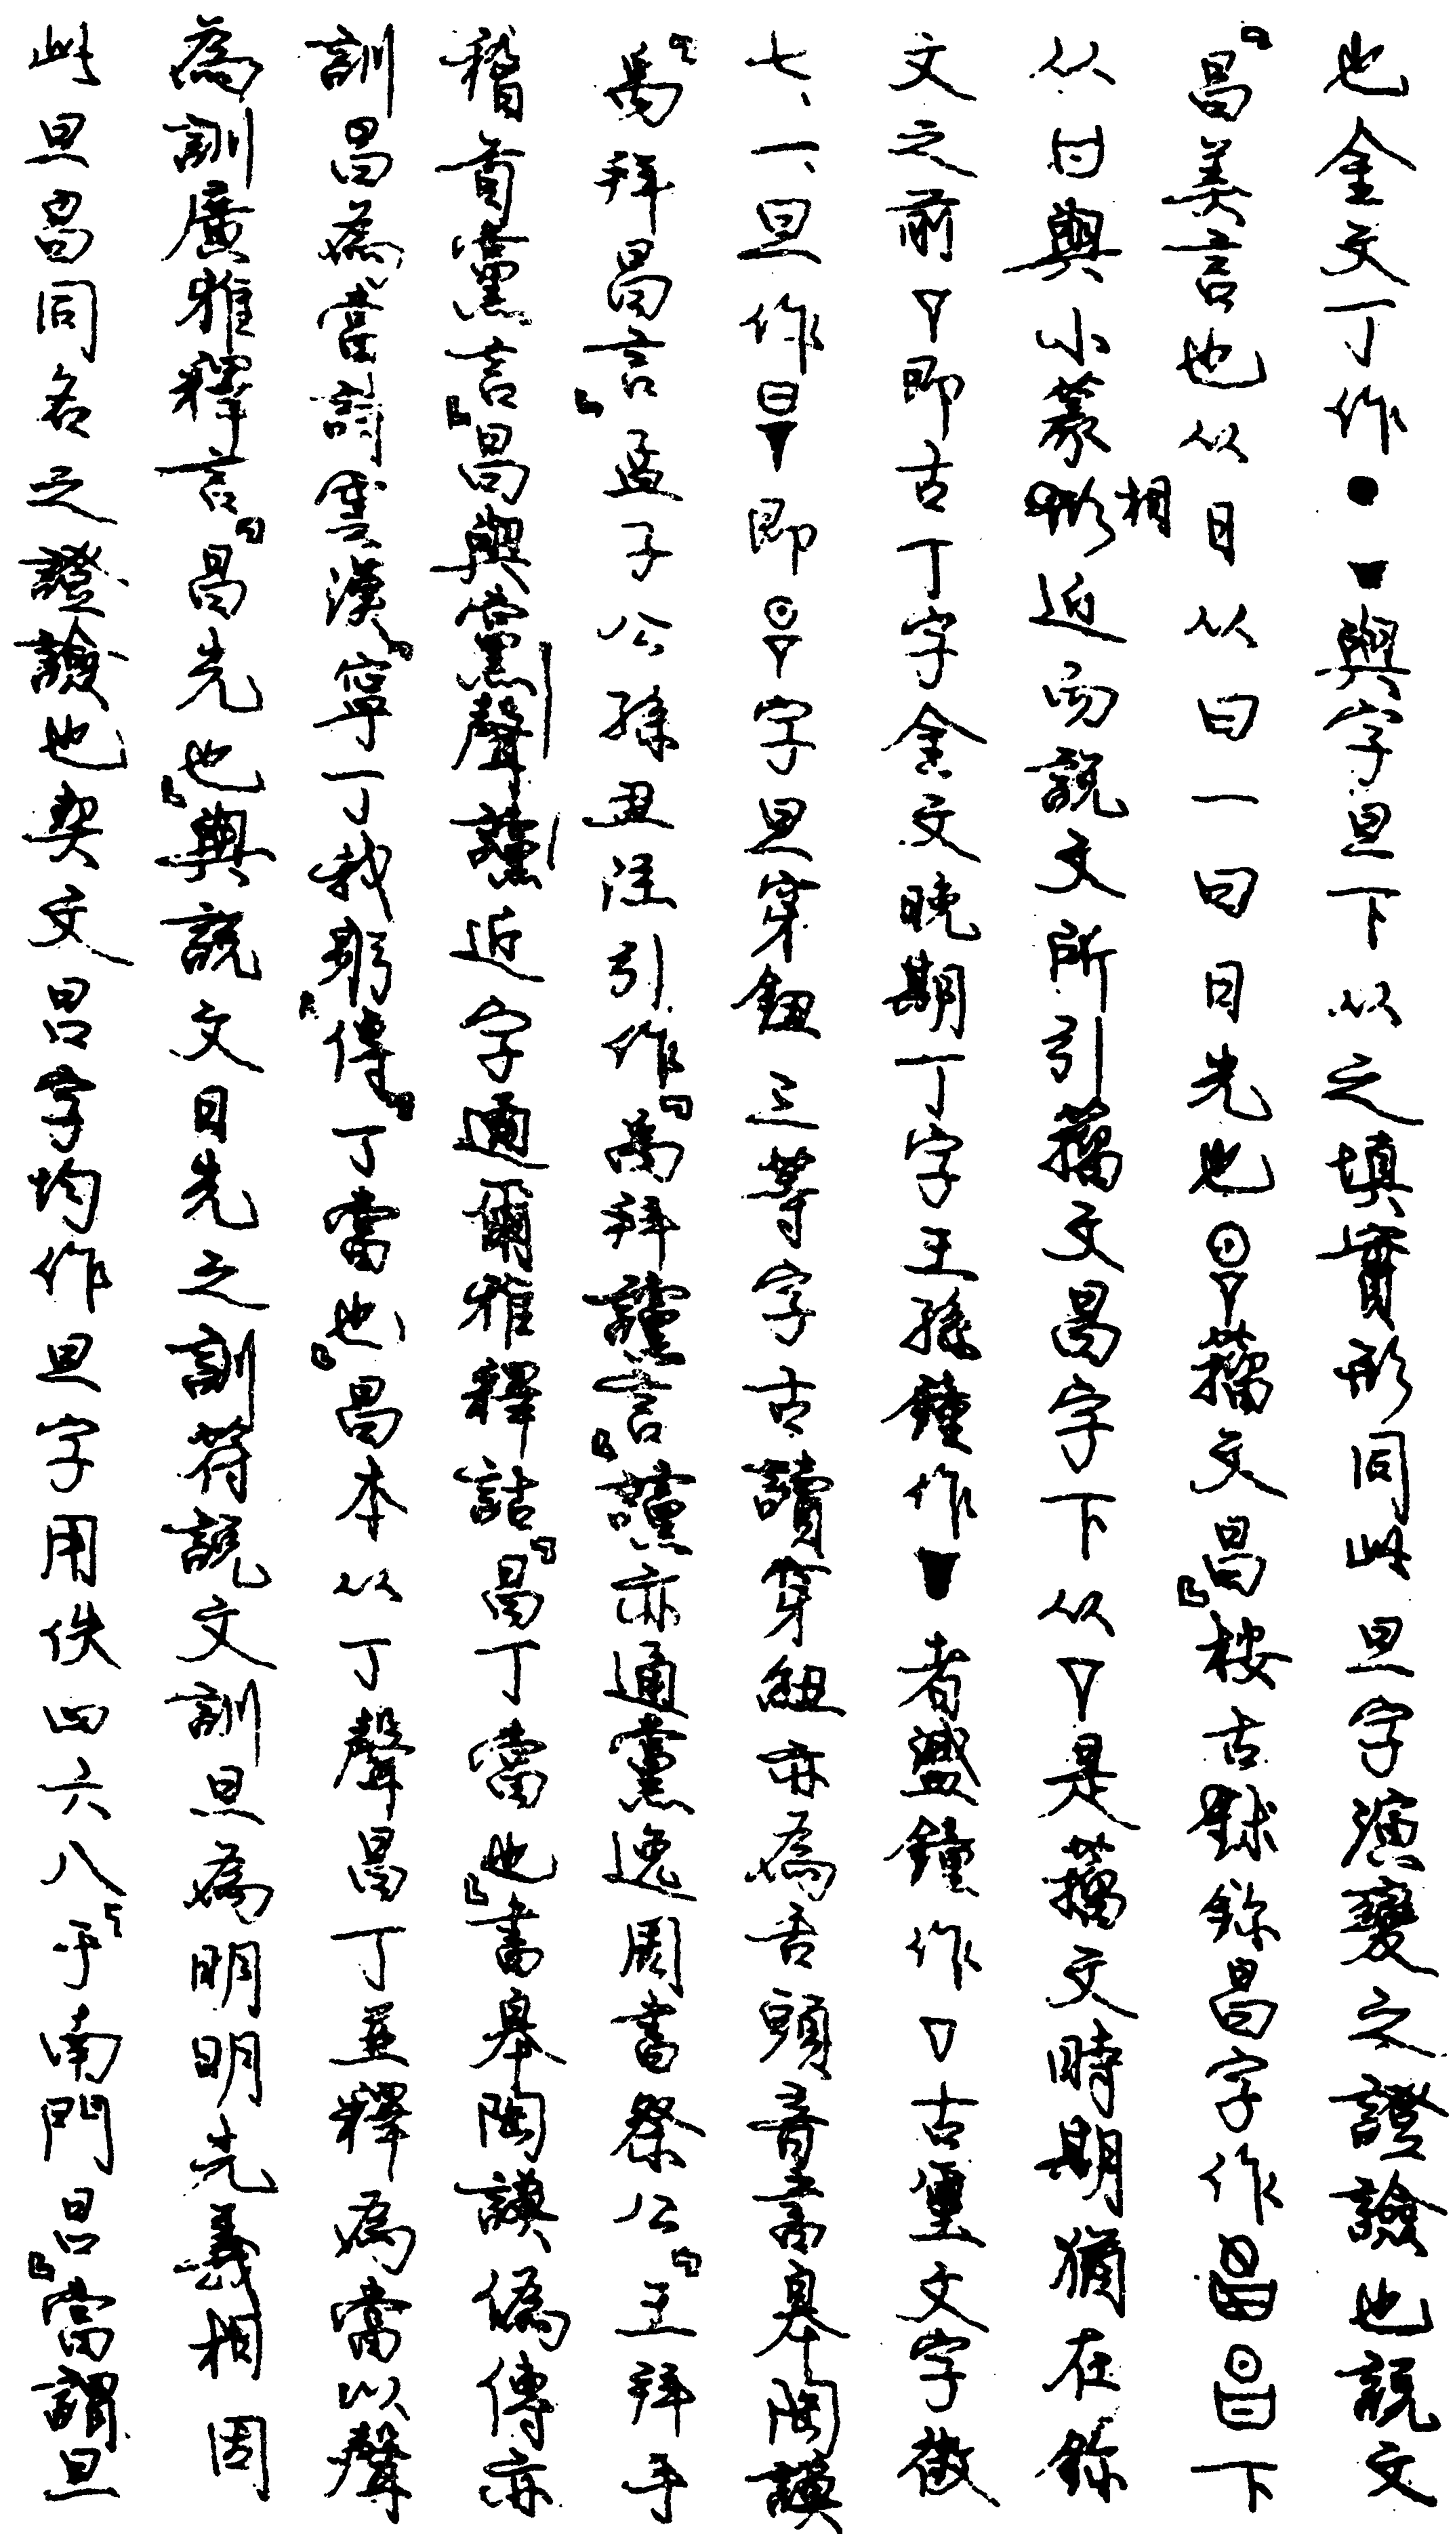 也金文丁作●▼與字旦下以之填實形同此旦字演變之證驗也說文
「昌美言也从日从曰一曰日先也籀文昌」桉古鉥鉨昌字作下
从曰與小篆相近而說文所引籀文昌字下从▽是籀文時期猶在鉨
文之前▽即古丁字金文晚期丁字王孫鐘作▼者盛鐘作▽古璽文字徵
七、一、旦作即字旦穿鈕三等字古讀穿紐亦為舌頭音書皋陶謨
「禹拜昌言」孟子公孫丑注引作「禹拜讜言」讜亦通黨逸周書祭公「王拜手
稽首黨言」昌與黨聲讜近字通爾雅釋詁「昌丁當也」書皋陶謨偽傳亦
訓昌為當詩雲漢「寧丁我躬」傳「丁當也」昌本从丁聲昌丁並釋為當以聲
為訓廣雅釋言「昌先也」與說文日先之訓符說文訓旦為明明先義相因
此旦昌同名之證驗也契文昌字均作旦字用佚四六八「于南門旦」當謂旦